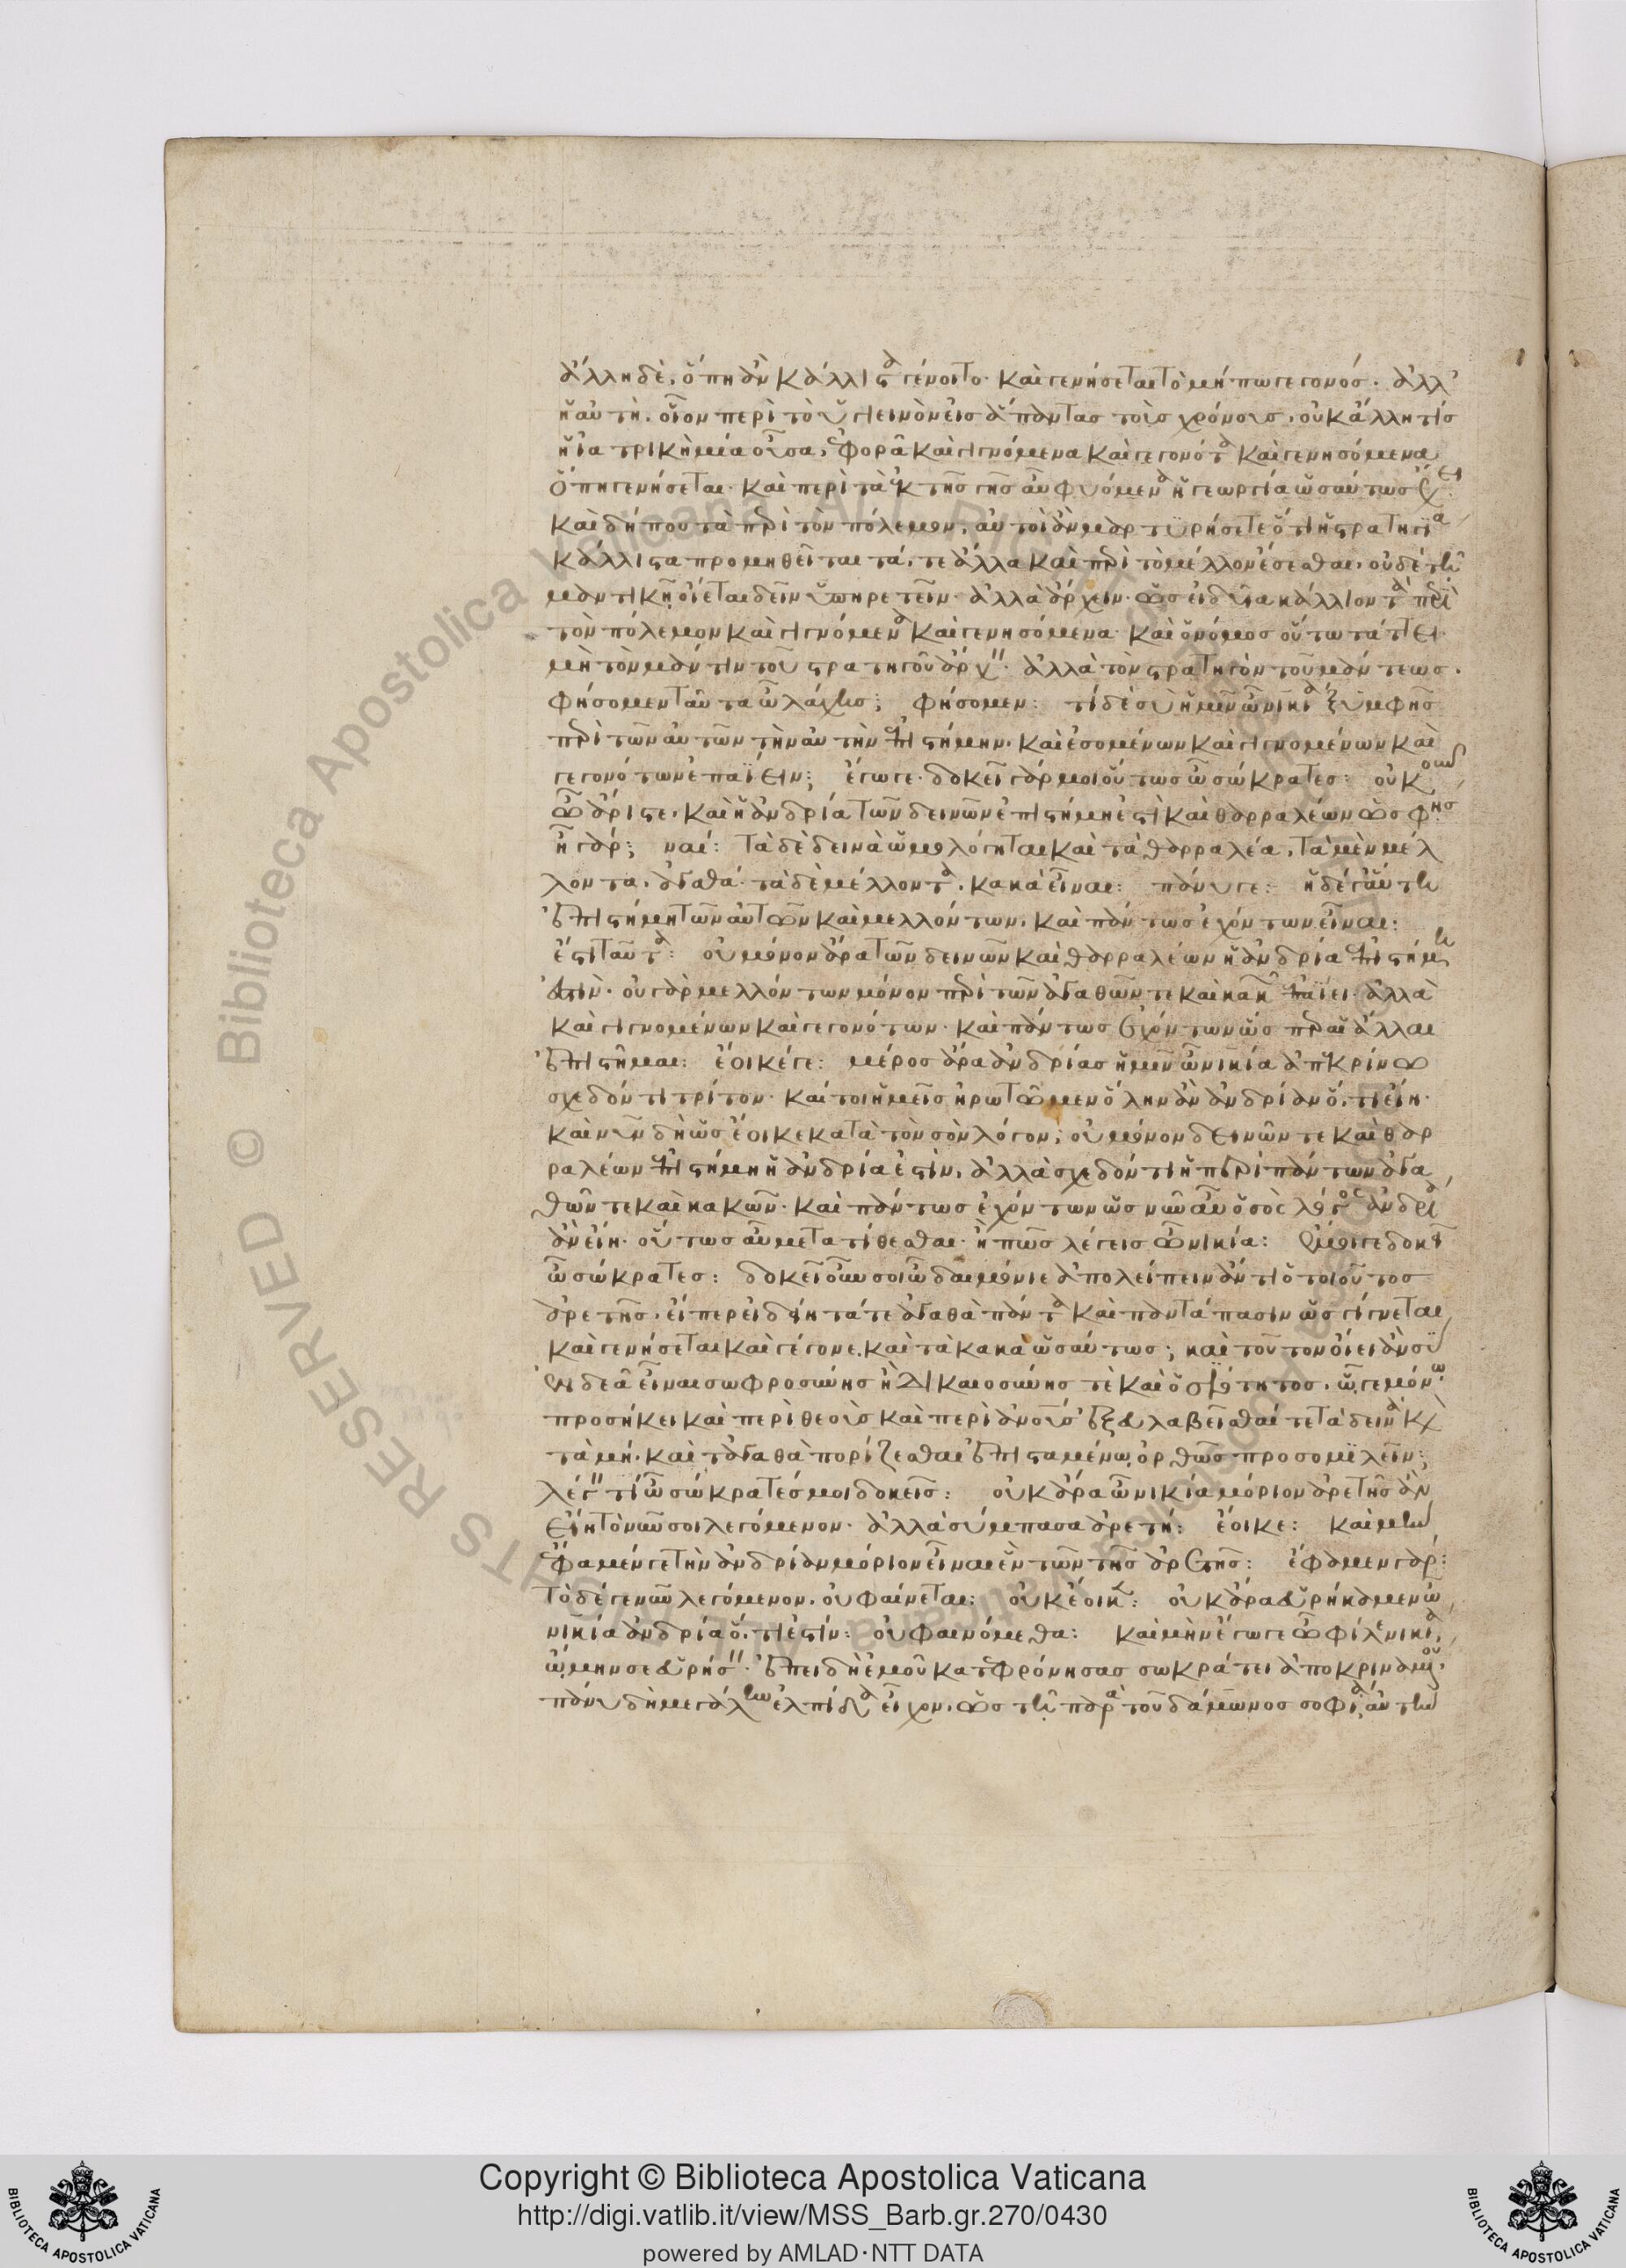 ἄλλη δὲ, ὅπη ἂν κάλλιστα γένοιτο. καὶ γενήσεται τὸ μήπω γεγονός. ἀλλ'
ἡ αὐτὴ. οἷον περὶ τὸ ὑγιεινὸν εἰς ἅπαντας τοὺς χρόνους, οὐκ ἄλλη τίς
ἢ ἰατρικὴ μία οὖσα, ἐφορᾷ καὶ γιγνόμενα καὶ γεγονότα καὶ γενησόμενα
ὅπη γενήσεται. καὶ περὶ τὰ ἐκ τῆς γῆς αὖ φυόμενα ἡ γεωργία ὡσαύτως ἔχει:
καὶ δήπου τὰ περὶ τὸν πόλεμον, αὐτοὶ ἂν μαρτυρήσετε ὅτι ἡ στρατηγία
κάλλιστα προμηθεῖται τά, τε ἄλλα καὶ περὶ τὸ μέλλον ἔσεσθαι, οὐδὲ τῇ
μαντικῇ οἴεται δεῖν ὑπηρετεῖν. ἀλλὰ ἄρχειν. ὡς εἰδυῖα κάλλιον τὰ περὶ
τὸν πόλεμον καὶ γιγνόμενα καὶ γενησόμενα. καὶ ὁ νόμος οὕτω τάττει.
μὴ τὸν μάντιν τοῦ στρατηγοῦ ἄρχειν. ἀλλὰ τὸν στρατηγὸν τοῦ μάντεως.
φήσομεν ταῦτα ὦ λάχης; φήσομεν: τί δὲ σὺ ἡμῖν ὦ νικία ξύμφης
περὶ τῶν αὐτῶν τὴν αὐτὴν ἐπιστήμην. καὶ ἐσομένων καὶ γιγνομένων καὶ
γεγονότων ἐπαΐειν; ἔγωγε. δοκεῖ γάρ μοι οὕτως ὦ σώκρατες: οὐκοῦν
ὦ ἄριστε. καὶ ἡ ἀνδρία τῶν δεινῶν ἐπιστήμη ἐστὶ καὶ θαρραλέων ὡς φής
ἦ γάρ; ναί: τὰ δὲ δεινὰ ὡμολόγηται καὶ τὰ θαρραλέα, τὰ μὲν μέλ
λοντα, ἀγαθά. τὰ δὲ μέλλοντα, κακὰ εἶναι: πάνυ γε: ἡ δέ γ' αὐτὴ
ἐπιστήμη τῶν αὐτῶν καὶ μελλόντων. καὶ πάντως ἐχόντων εἶναι:
ἔστι ταῦτα: οὐ μόνον ἄρα τῶν δεινῶν καὶ θαρραλέων ἡ ἀνδρία ἐπιστήμη
ἐστιν. οὐ γὰρ μελλόντων μόνον περὶ τῶν ἀγαθῶν τε καὶ κακῶν ἐπαΐει. ἀλλὰ
καὶ γιγνομένων καὶ γεγονότων. καὶ πάντως ἐχόντων ὥσπερ αἱ ἄλλαι
ἐπιστῆμαι: ἔοικέ γε: μέρος ἄρα ἀνδρίας ἡμῖν ὦ νικία ἀπεκρίνω
σχεδόν τι τρίτον. καίτοι ἡμεῖς ἠρωτῶμεν ὅλην ἂν ἀνδρίαν ὅ, τι εἴη.
καὶ νῦν δὴ ὡς ἔοικε κατὰ τὸν σὸν λόγον; οὐ μόνον δεινῶν τε καὶ θαρ
ραλέων ἐπιστήμη ἡ ἀνδρία ἐστὶν, ἀλλὰ σχεδόν τι ἡ περὶ πάντων ἀγα
θῶν τε καὶ κακῶν. καὶ πάντως ἐχόντων ὡς νῦν αὖ ὁ σὸς λόγος ἀνδρία
ἂν εἴη. οὕτως αὖ μετατίθεσθαι. ἢ πῶς λέγεις ὦ νικία: ἔμοιγε δοκεῖ
ὦ σώκρατες: δοκεῖ οὖν σοι ὦ δαιμόνιε ἀπολείπειν ἄν τι ὁ τοιοῦτος
ἀρετῆς. εἴπερ εἰδείη τά τε ἀγαθὰ πάντα καὶ παντάπασιν ὡς γίγνεται
καὶ γενήσεται καὶ γέγονε. καὶ τὰ κακὰ ὡσαύτως; καὶ τοῦτον οἴει ἂν σὺ
ἐνδεᾶ εἶναι σωφροσύνης ἢ δικαιοσύνης τὲ καὶ ὁσιότητος. ᾧ γε μόνῳ
προσήκει καὶ περὶ θεοὺς καὶ περὶ ἀνους ἐξευλαβεῖσθαί τε τὰ δεινὰ καὶ
τὰ μή. καὶ τἀγαθὰ πορίζεσθαι ἐπισταμένῳ ὀρθῶς προσομιλεῖν;
λέγειν τὶ ὦ σώκρατές μοι δοκεῖς: οὐκ ἄρα ὦ νικία μόριον ἀρετῆς ἂν
εἴη τὸ νῦν σοι λεγόμενον. ἀλλὰ σύμπασα ἀρετή: ἔοικε: καὶ μὴν
ἔφαμέν γε τὴν ἀνδρίαν μόριον εἶναι ἓν τῶν τῆς ἀρετῆς: ἔφαμεν γάρ:
τὸ δέ γε νῦν λεγόμενον. οὐ φαίνεται: οὐκ ἔοικε: οὐκ ἄρα εὑρήκαμεν ὦ
νικία ἀνδρία ὅ, τι ἐστίν: οὐ φαινόμεθα: καὶ μὴν ἔγωγε ὦ φίλε νικία,
ᾤμην σε εὑρήσειν. ἐπειδὴ ἐμοῦ κατεφρόνησας σωκράτει ἀποκριναμένου.
πάνυ δὴ μεγάλην ἐλπίδα εἶχον, ὡς τῇ παρὰ τοῦ δάμωνος σοφίᾳ αὐτὴν